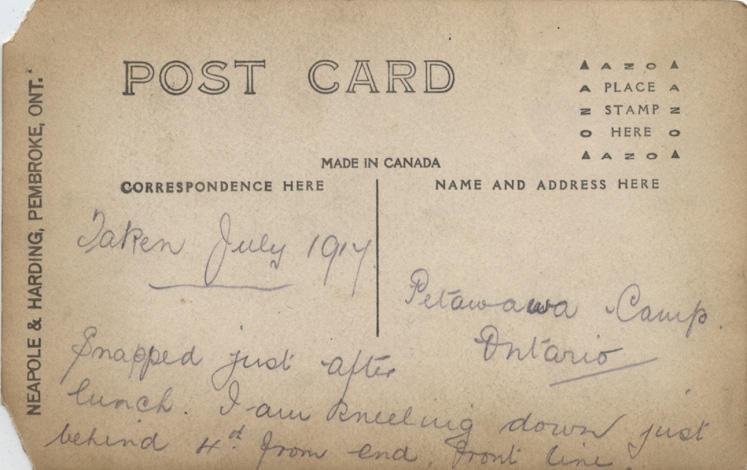 POST CARD
▲ A Z O ▲
A PLACE A
Z STAMP Z
O HERE O
▲ A Z O ▲
MADE IN CANADA
CORRESPONDENCE HERE
NAME AND ADDRESS HERE
NEAPOLE & HARDING, PEMBROKE, ONT.
Taken July 1917
Petawawa Camp.
Ontario
Snapped just after
lunch. I am kneeling down just
behind 4th from end, front line